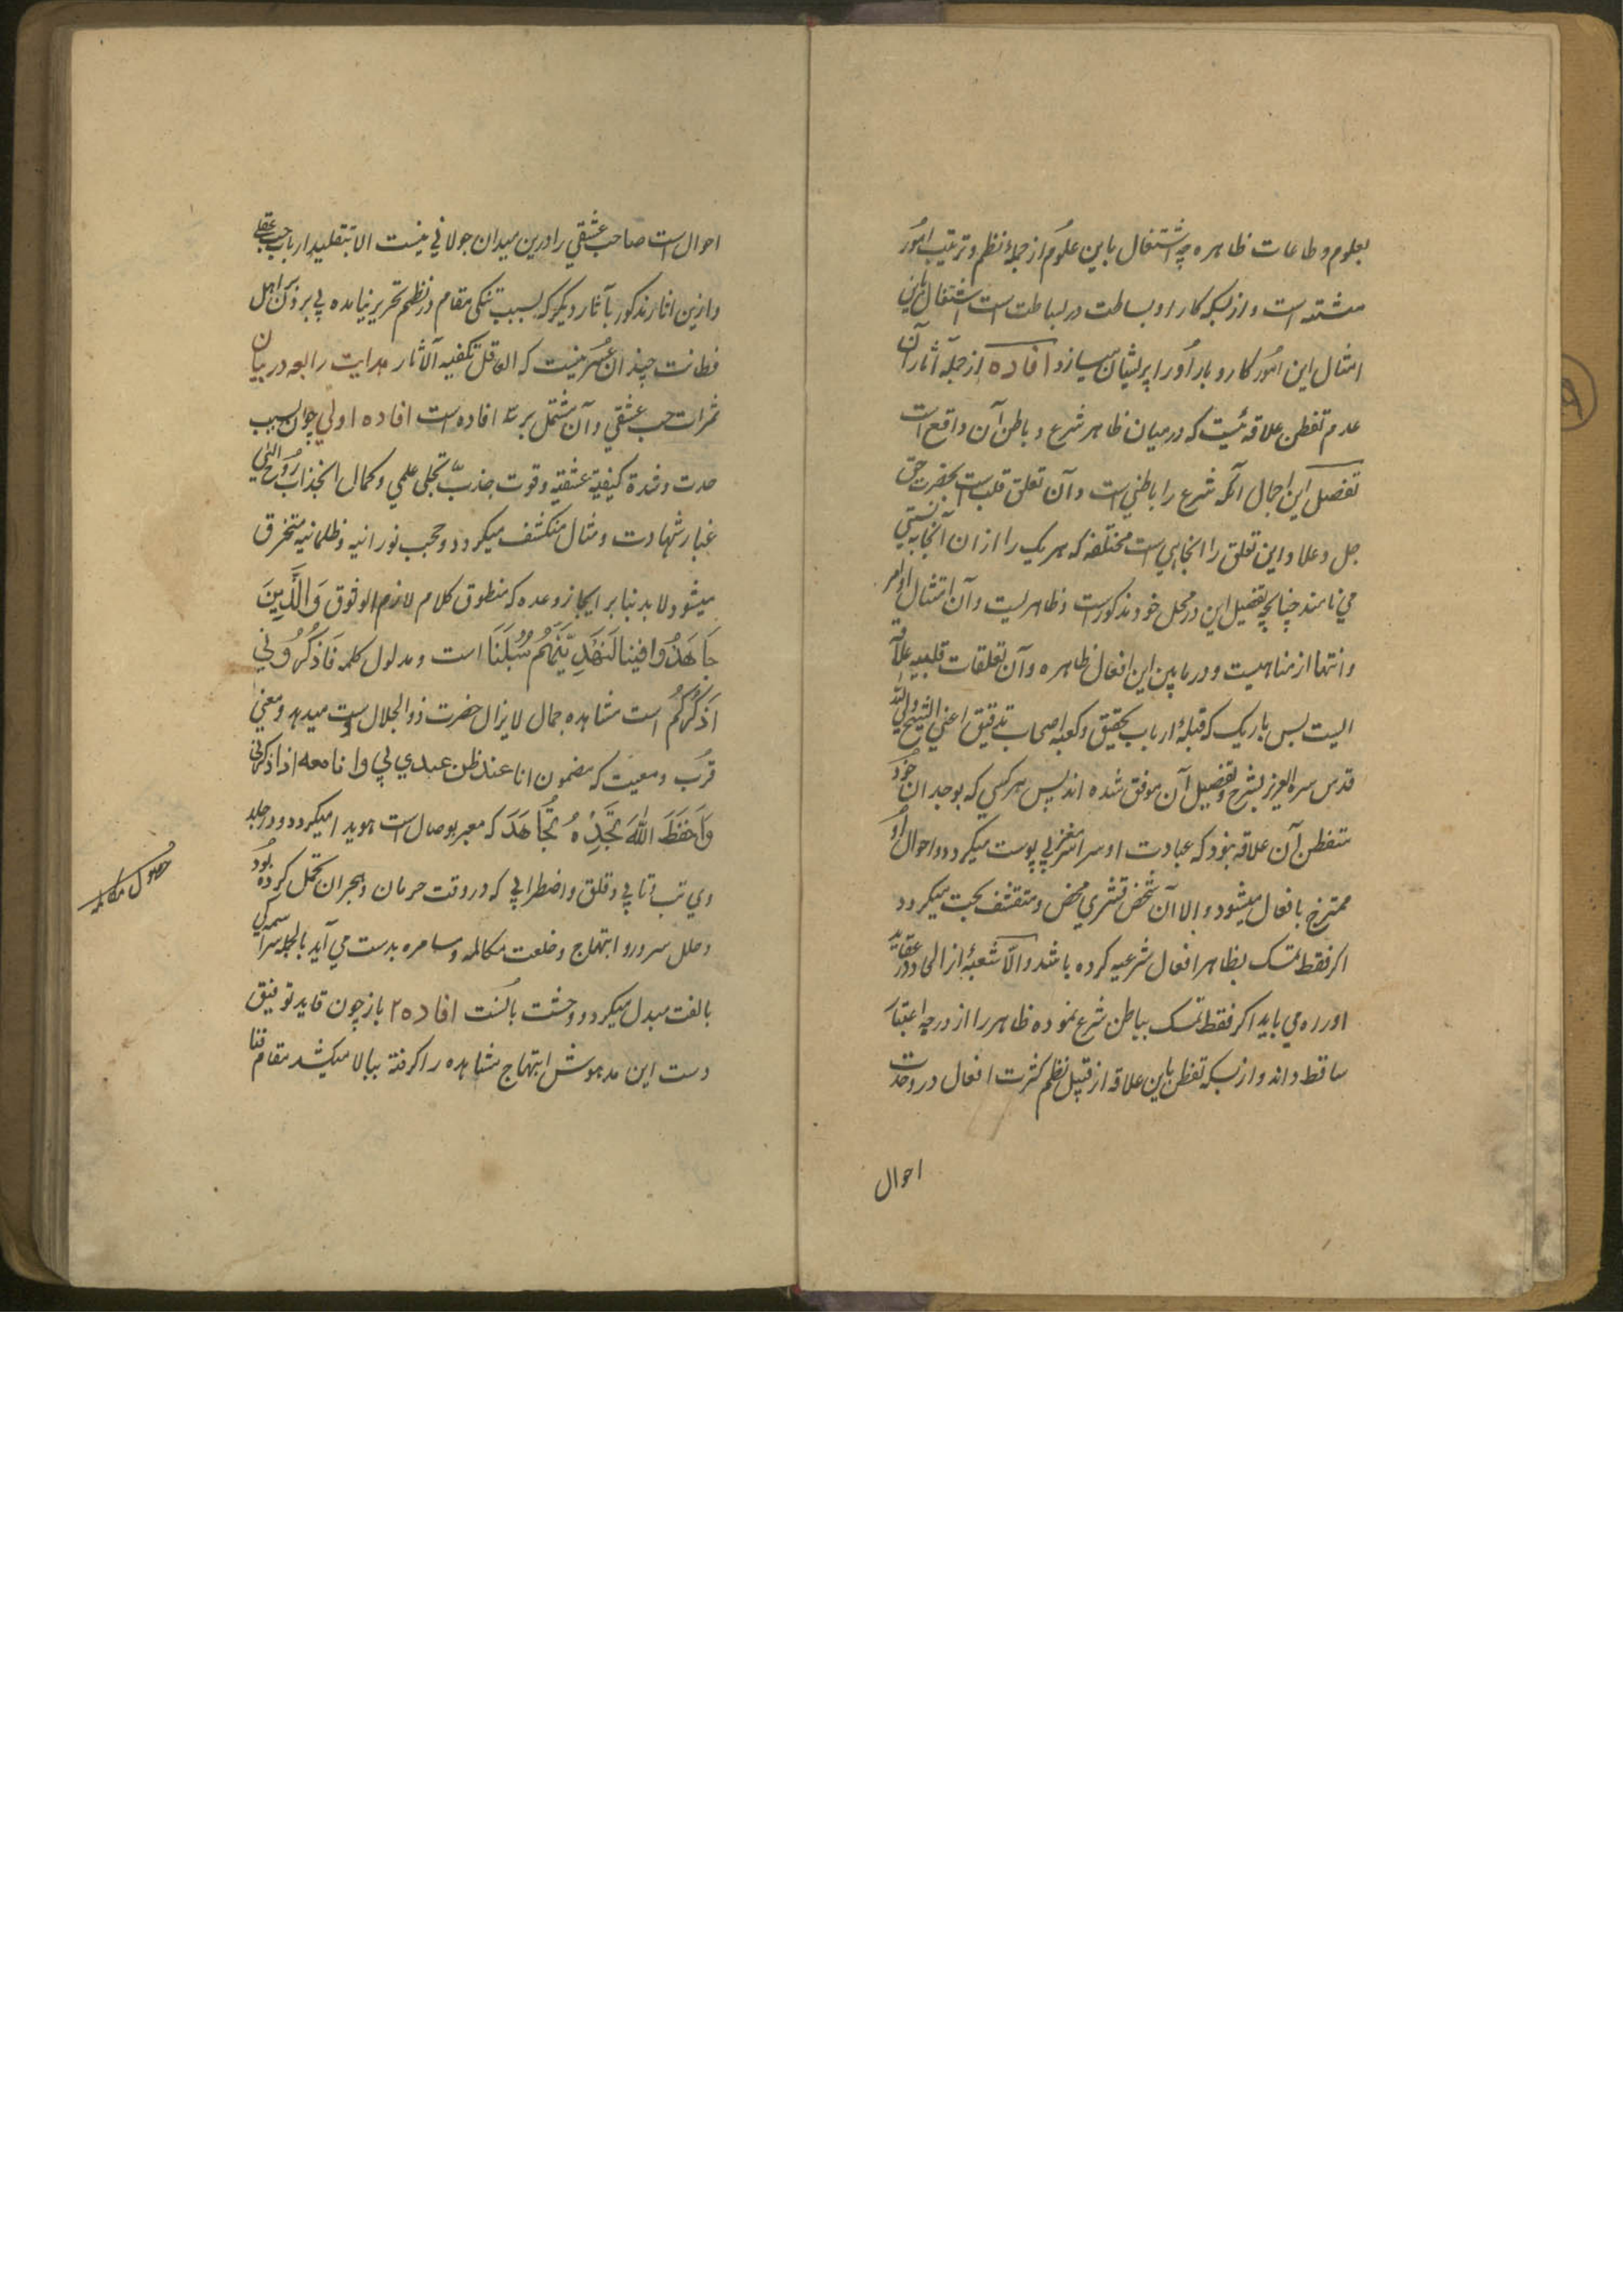 بعلوم و طاعات ظاهره چه اشتغال باین علوم از جملهٔ نظم و ترتیب امور
مشتته است و از بسکه کار او بساطت در بساطت است اشتغال باین
امثال این امور کار و بار او را پریشان میسازد افاده از جمله آثار آن
عدم تفطن علاقه ئیست که درمیان ظاهر شرع و باطن آن واقع است
تفصیل این اجمال آنکه شرع را باطنی است و آن تعلق قلب است بحضرت حق
جل و علا و این تعلق را انحایی است مختلفه که هر یک را ازان انحا به نسبتی
می نامند چنانچه تفصیل این در محل خود مذکورست و ظاهریست و آن امتثال اوامر
و انتها از مناهیست و درمابین این افعال ظاهره و آن تعلقات قلبیه علاقه
ایست بس باریک که قبلهٔ ارباب تحقیق و کعبه اصحاب تدقیق اعنی الشیخ ولی الله
قدس سره العزیز بشرح و تفصیل آن موفق شده اند پس هر کسی که بوجدان خود
متفطن آن علاقه بود که عبادت او سراسر مغز بی پوست میگردد و احوال او
ممتزج بافعال میشود و الا آن شخص قشری محض و متقشف بحت میگردد
اگر فقط تمسک بظاهر افعال شرعیه کرده باشد و الّا شعبهٔ از الحاد در عقاید
او راه می یابد اگر فقط تمسک بباطن شرع نموده ظاهر را از درجه اعتبار
ساقط داند و از بسکه تفطن باین علاقه از قبیل نظم کثرت افعال در وحدت
احوال
احوال است صاحب عشقی را درین میدان جولانی نیست الا بتقلید ارباب حب عقلی
و ازین اثار مذکور بآثار دیگر که بسبب تنگی مقام در نظم تحریر نیامده پی بردن اهل
فطانت چندان عسر نیست که العاقل تکفیه الآثار هدایت رابعه در بیان
ثمرات حب عشقی و آن مشتمل بر سه افاده است افاده اولی چون بسبب
حدت و شدة کیفیة عشقیه و قوت جذب تجلی علمی و کمال انجذاب روح الهی
غبار شهادت و مثال منکشف میگردد و حجب نورانیه و ظلمانیه متخرق
میشود لابد بنا بر ایجاز وعده که منطوق کلام لازم الوثوق وَالَّذِینَ
جَاهَدُوا فِینَا لَنَهْدِیَنَّهُمْ سُبُلَنَا است و مدلول کلمه فَاذْکُرُونِی
اَذْکُرْکُم است مشاهده جمال لا یزال حضرت ذوالجلال دست میدهد و معنی
قرب و معیت که مضمون انا عند ظن عبدی بی و انا معه اذا ذکرنی
وَاحْفَظِ اللهَ تَجِدْهُ تُجَاهَکَ که معبر بوصال است هویدا میگردد و در جلد
وی تب و تابی و قلق و اضطرابی که در وقت حرمان و هجران تحمل کرده بود
و حلل سرور و ابتهاج و خلعت مکالمه و مسامره بدست می آید بالجمله
بالفت مبدل میگردد و وحشت بانست افاده ۲ باز چون قاید توفیق
دست این مدهوش ابتهاج مشاهده را گرفته ببالا میکشد مقام فنا
حصول مکالمه